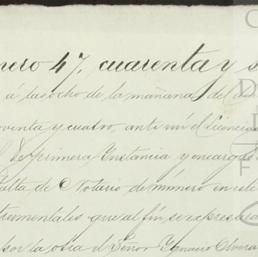 nero 47, cuarenta y s
á las ocho de la mañana del
oventa y cuatro, ante mí el Licencia
de primera Instancia y encargado
falta de Notario de número en este
trumentales que al fin se expresará
sor la otra el Señor Ygnacio Olvera